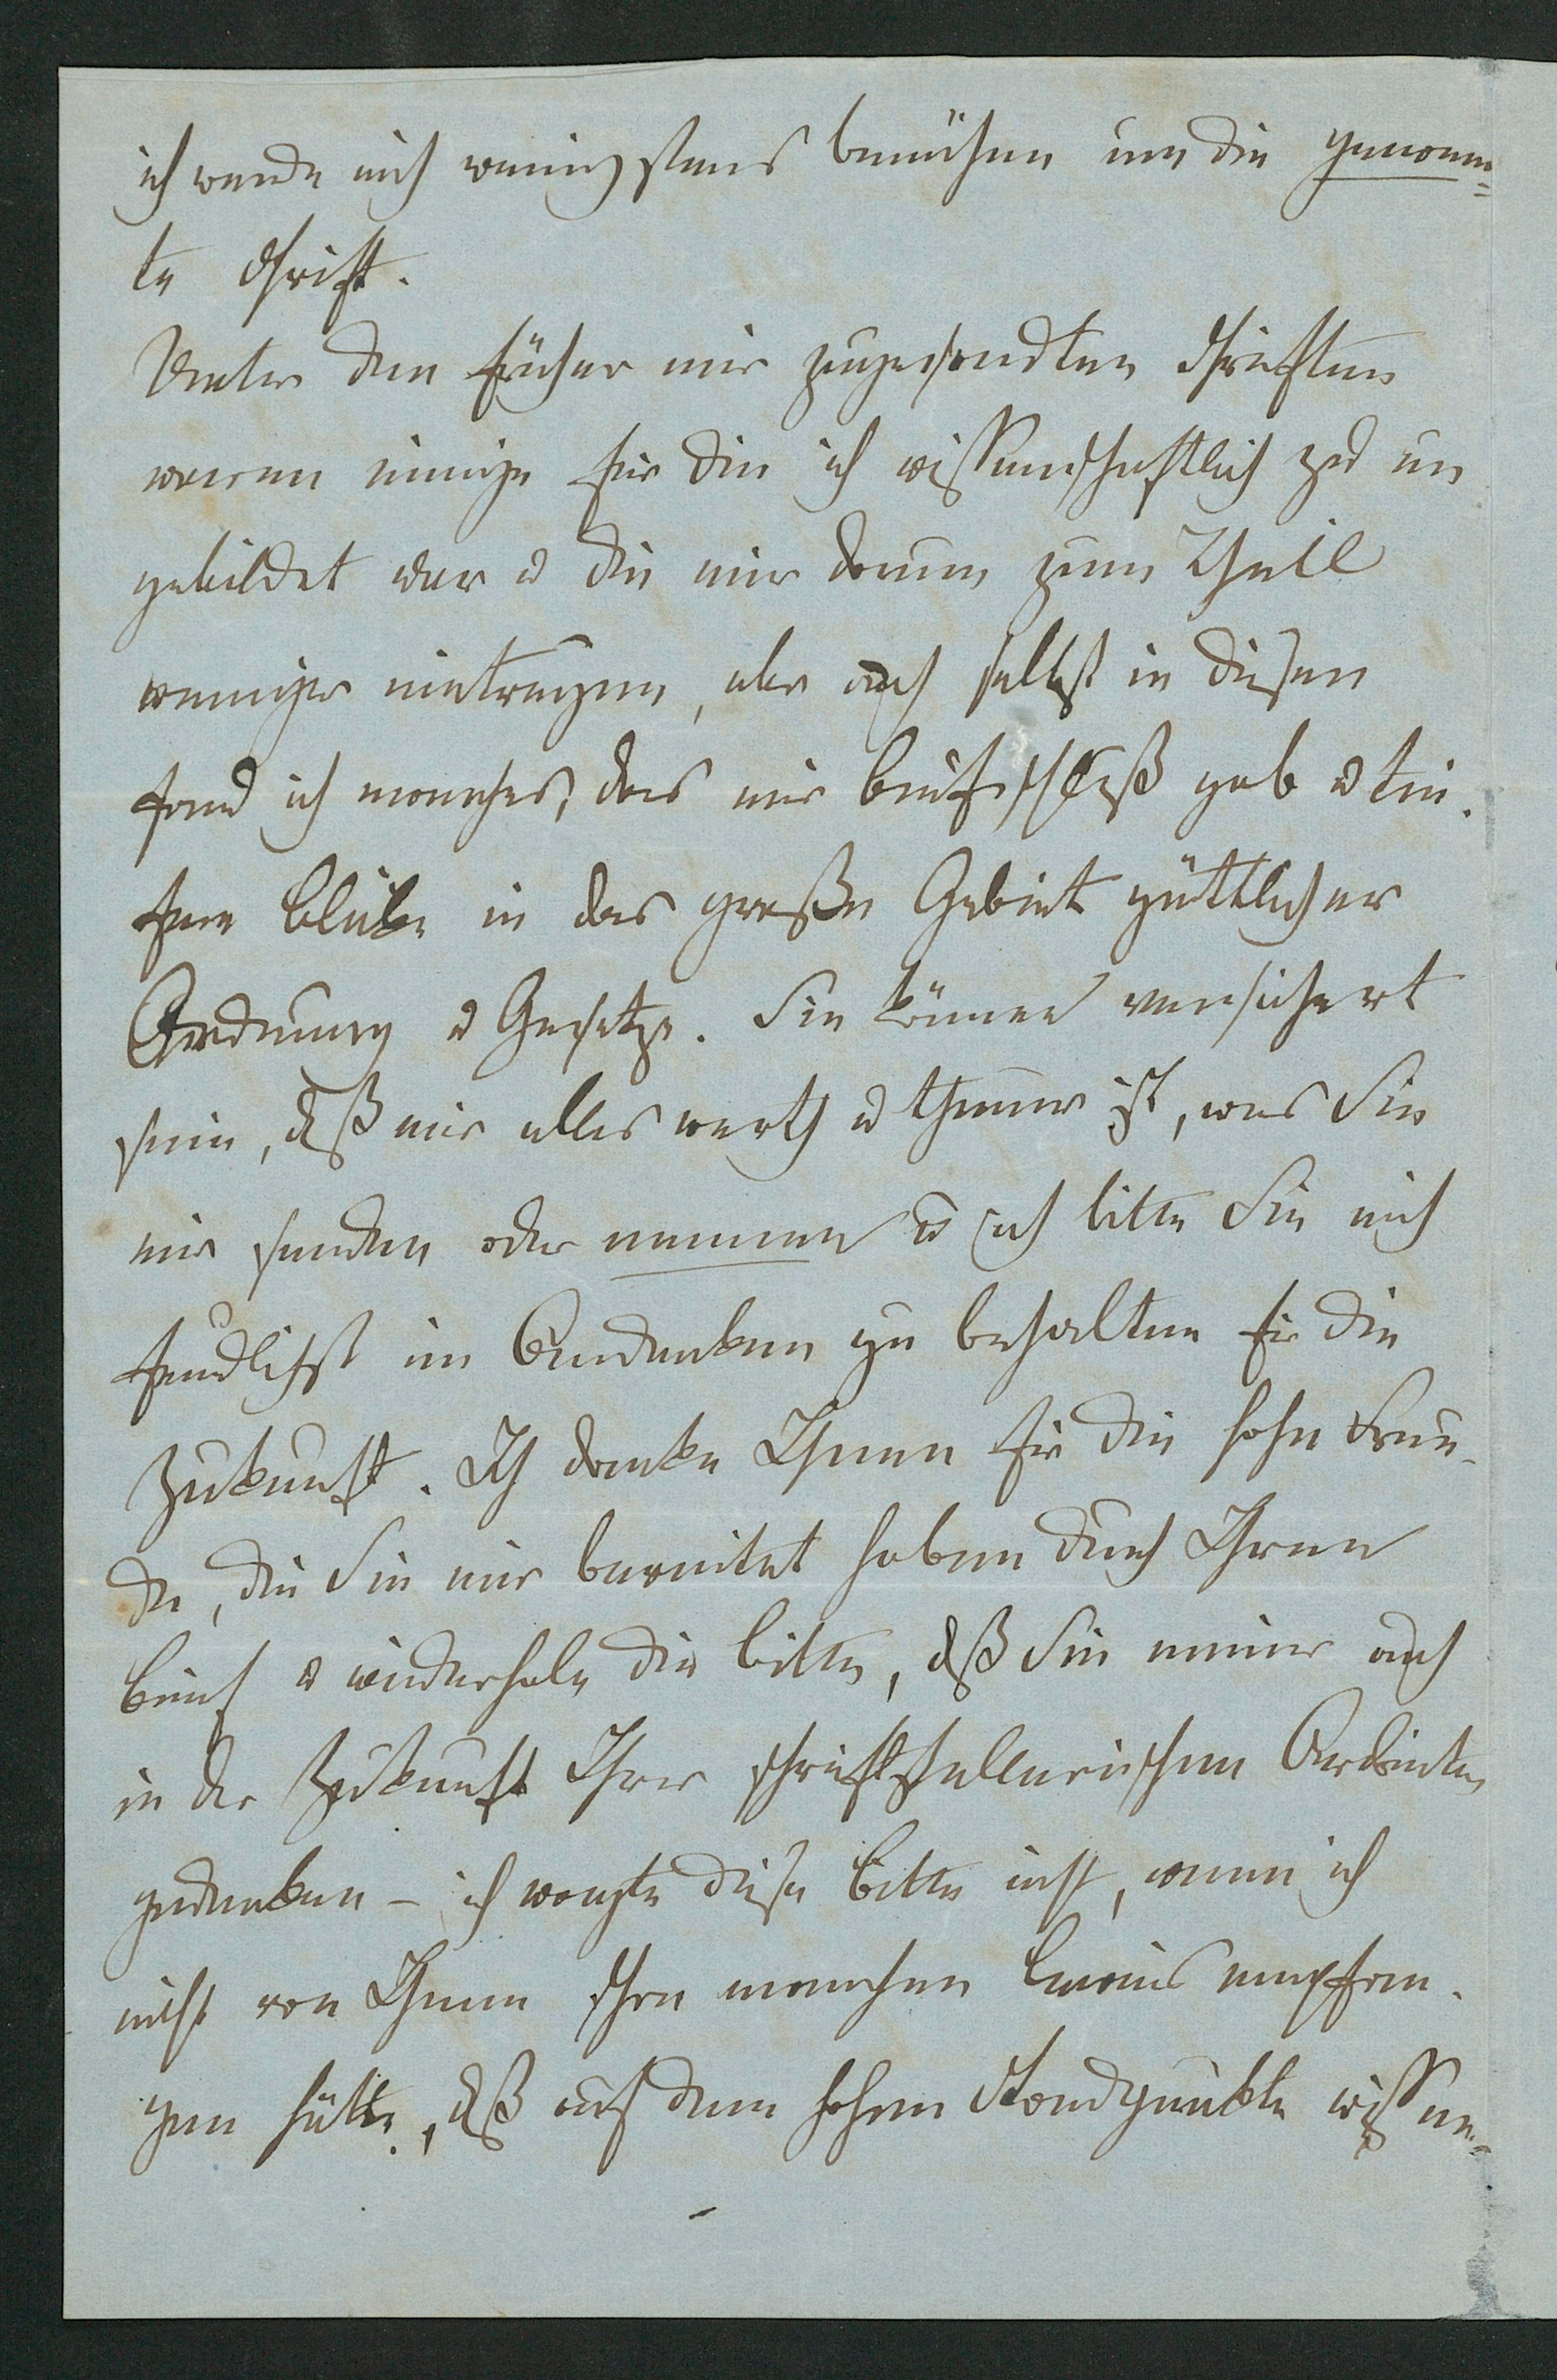 ich werde mich wenigstens bemühen um die genann=
te Schrift.
Unter den früher mir zugesandten Schriften
waren einige für die ich wissenschaftlich zu un
gebildet war u die mir darum zum Theil
weniger eintrugen, aber auch selbst in diesen
fand ich manches, das mir Aufschluß gab u tie-
fere Blicke in das große Gebiet göttlicher
Ordnung u Gesetze. Sie können versichert
sein, daß mir alles werth u theuer ist, was Sie
mir senden oder nennen u ich bitte Sie mich
freundlichst im Andenken zu behalten für die
Zukunft. Ich danke Ihnen für die hohe Freu-
de, die Sie mir bereitet haben durch Ihren
Brief u wiederhole die Bitte, daß Sie meiner auch
in der Zukunft Ihrer schriftstellerischen Arbeiten
gedenken – ich wagte diese Bitte nicht, wenn ich
nicht von Ihnen schon manchen Beweis empfan-
gen hätte, daß auf dem hohen Standpunkte wissen-